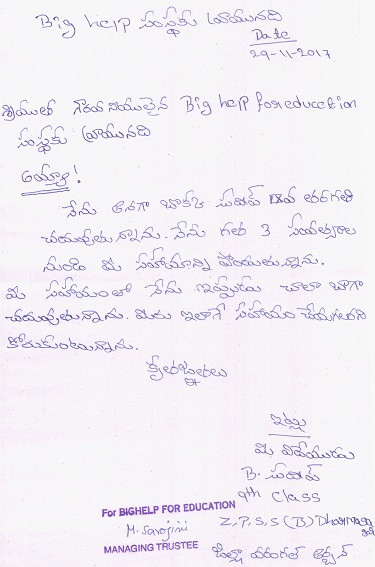 Big help సంస్థకు వ్రాయునది
Date
29-11-2017
శ్రీయుత గౌరవనీయులైన Big help for education
సంస్థకు వ్రాయునది
అయ్యా!
నేను అనగా IXవ తరగతి
చదువుతున్నాను. నేను గత 3 సంవత్సరాల
నుండి మీ సహాయాన్ని పొందుతున్నాను.
మీ సహాయంతో నేను ఇప్పుడు చాలా బాగా
చదువుతున్నాను. మీరు ఇలాగే సహాయం చేయగలరని
కోరుకుంటున్నాను.
కృతజ్ఞతలు
ఇట్లు
మీ విధేయుడు
B.
9th class
Z.P.S.S (B)
జిల్లా వరంగల్ అర్బన్
For BIGHELP FOR EDUCATION
M. Sarojini
MANAGING TRUSTEE